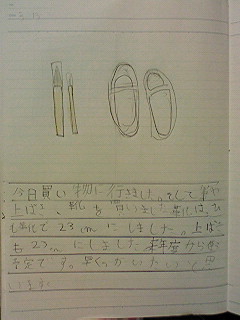 今日買い物に行きました。そして筆や
上ばき、靴を買いました 靴は、
し靴で23cmにしました。上ば
も23cmにしました 来年度から
予定です。早くつかいたい
います